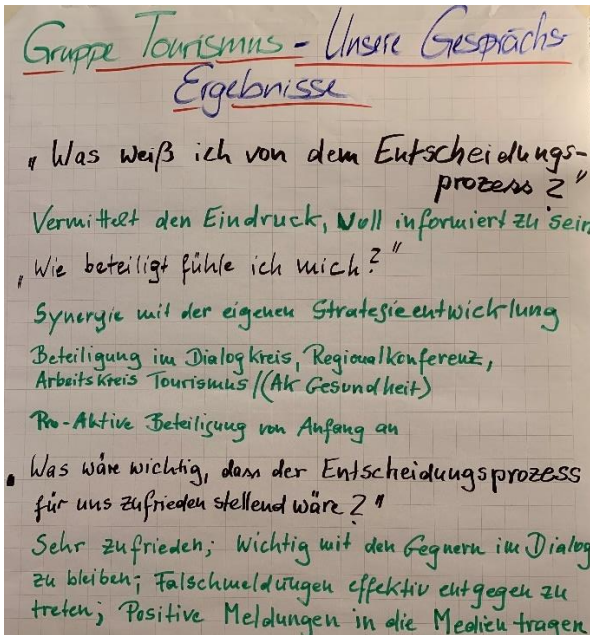 Gruppe Tourismus - Unsere Gesprächs-
Ergebnisse
"Was weiß ich von dem Entscheidungs-
prozess?"
Vermittelt den Eindruck, voll informiert zu sein
"Wie beteiligt fühle ich mich?"
Synergie mit der eigenen Strategieentwicklung
Beteiligung im Dialogkreis, Regionalkonferenz,
Arbeitskreis Tourismus/(AK Gesundheit)
Pro-Aktive Beteiligung von Anfang an
"Was wäre wichtig, dass der Entscheidungsprozess
für uns zufrieden stellend wäre?"
Sehr zufrieden; Wichtig mit den Gegnern im Dialog
zu bleiben; Falschmeldungen effektiv entgegen zu
treten; Positive Meldungen in die Medien tragen